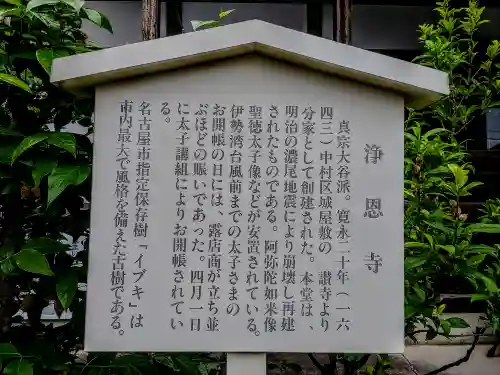 浄恩寺
真宗大谷派。寛永二十年(一六
四三)中村区城屋敷の 讃寺より
分家として創建された。本堂は、
明治の濃尾地震により崩壊し再建
されたものである。阿弥陀如来像
聖徳太子像などが安置されている。
伊勢湾台風前までの太子さまの
お開帳の日には、露店が立ち並
ぶほどの賑いであった。四月一日
に太子講組によりお開帳されてい
る。
名古屋市指定保存樹「イブキ」は
市内最大で風格を備えた古樹である。